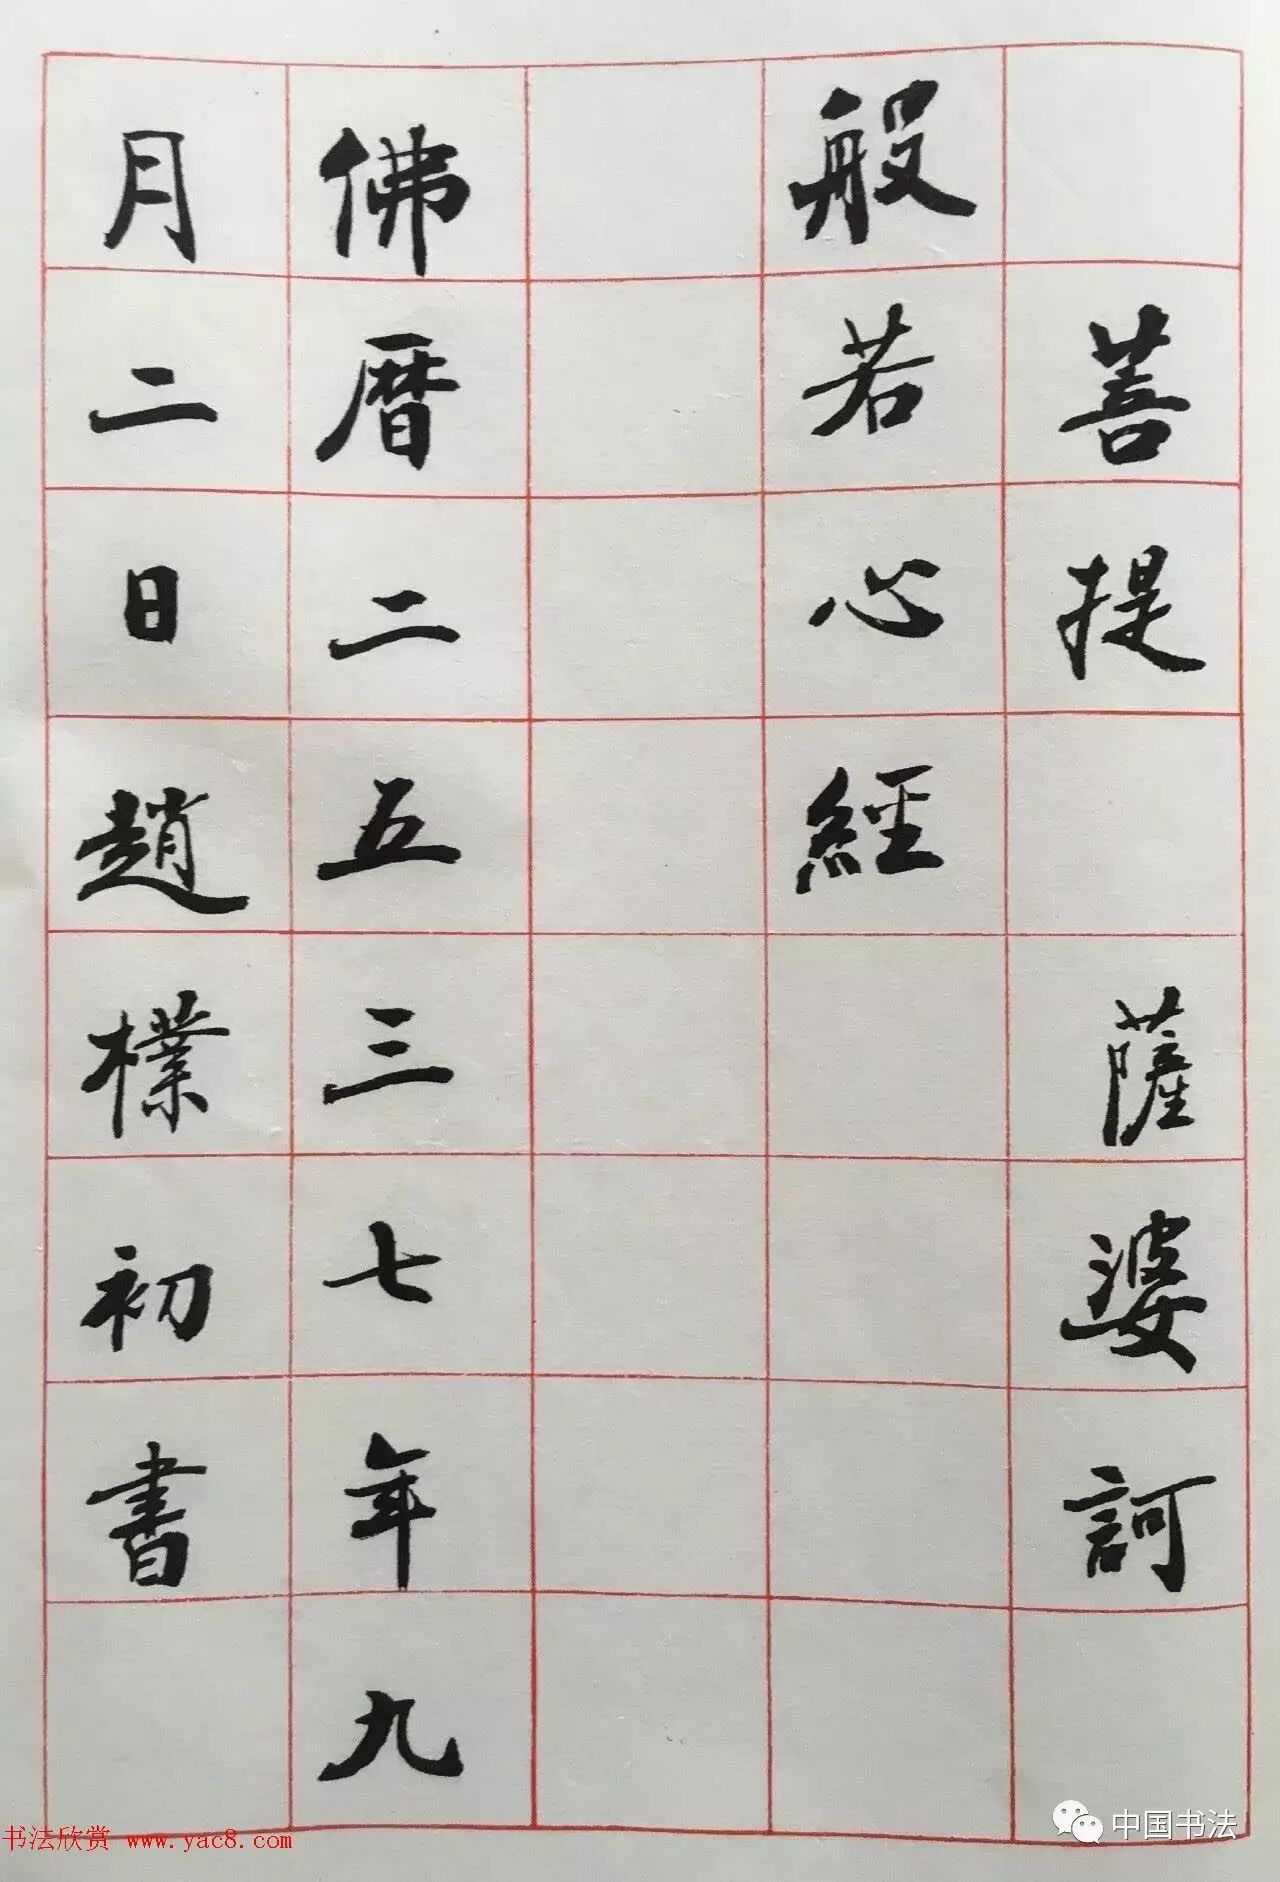 菩提 薩婆訶
般若心經
佛曆二五三七年九
月二日趙樸初書
书法欣赏 www.yac8.com
中国书法